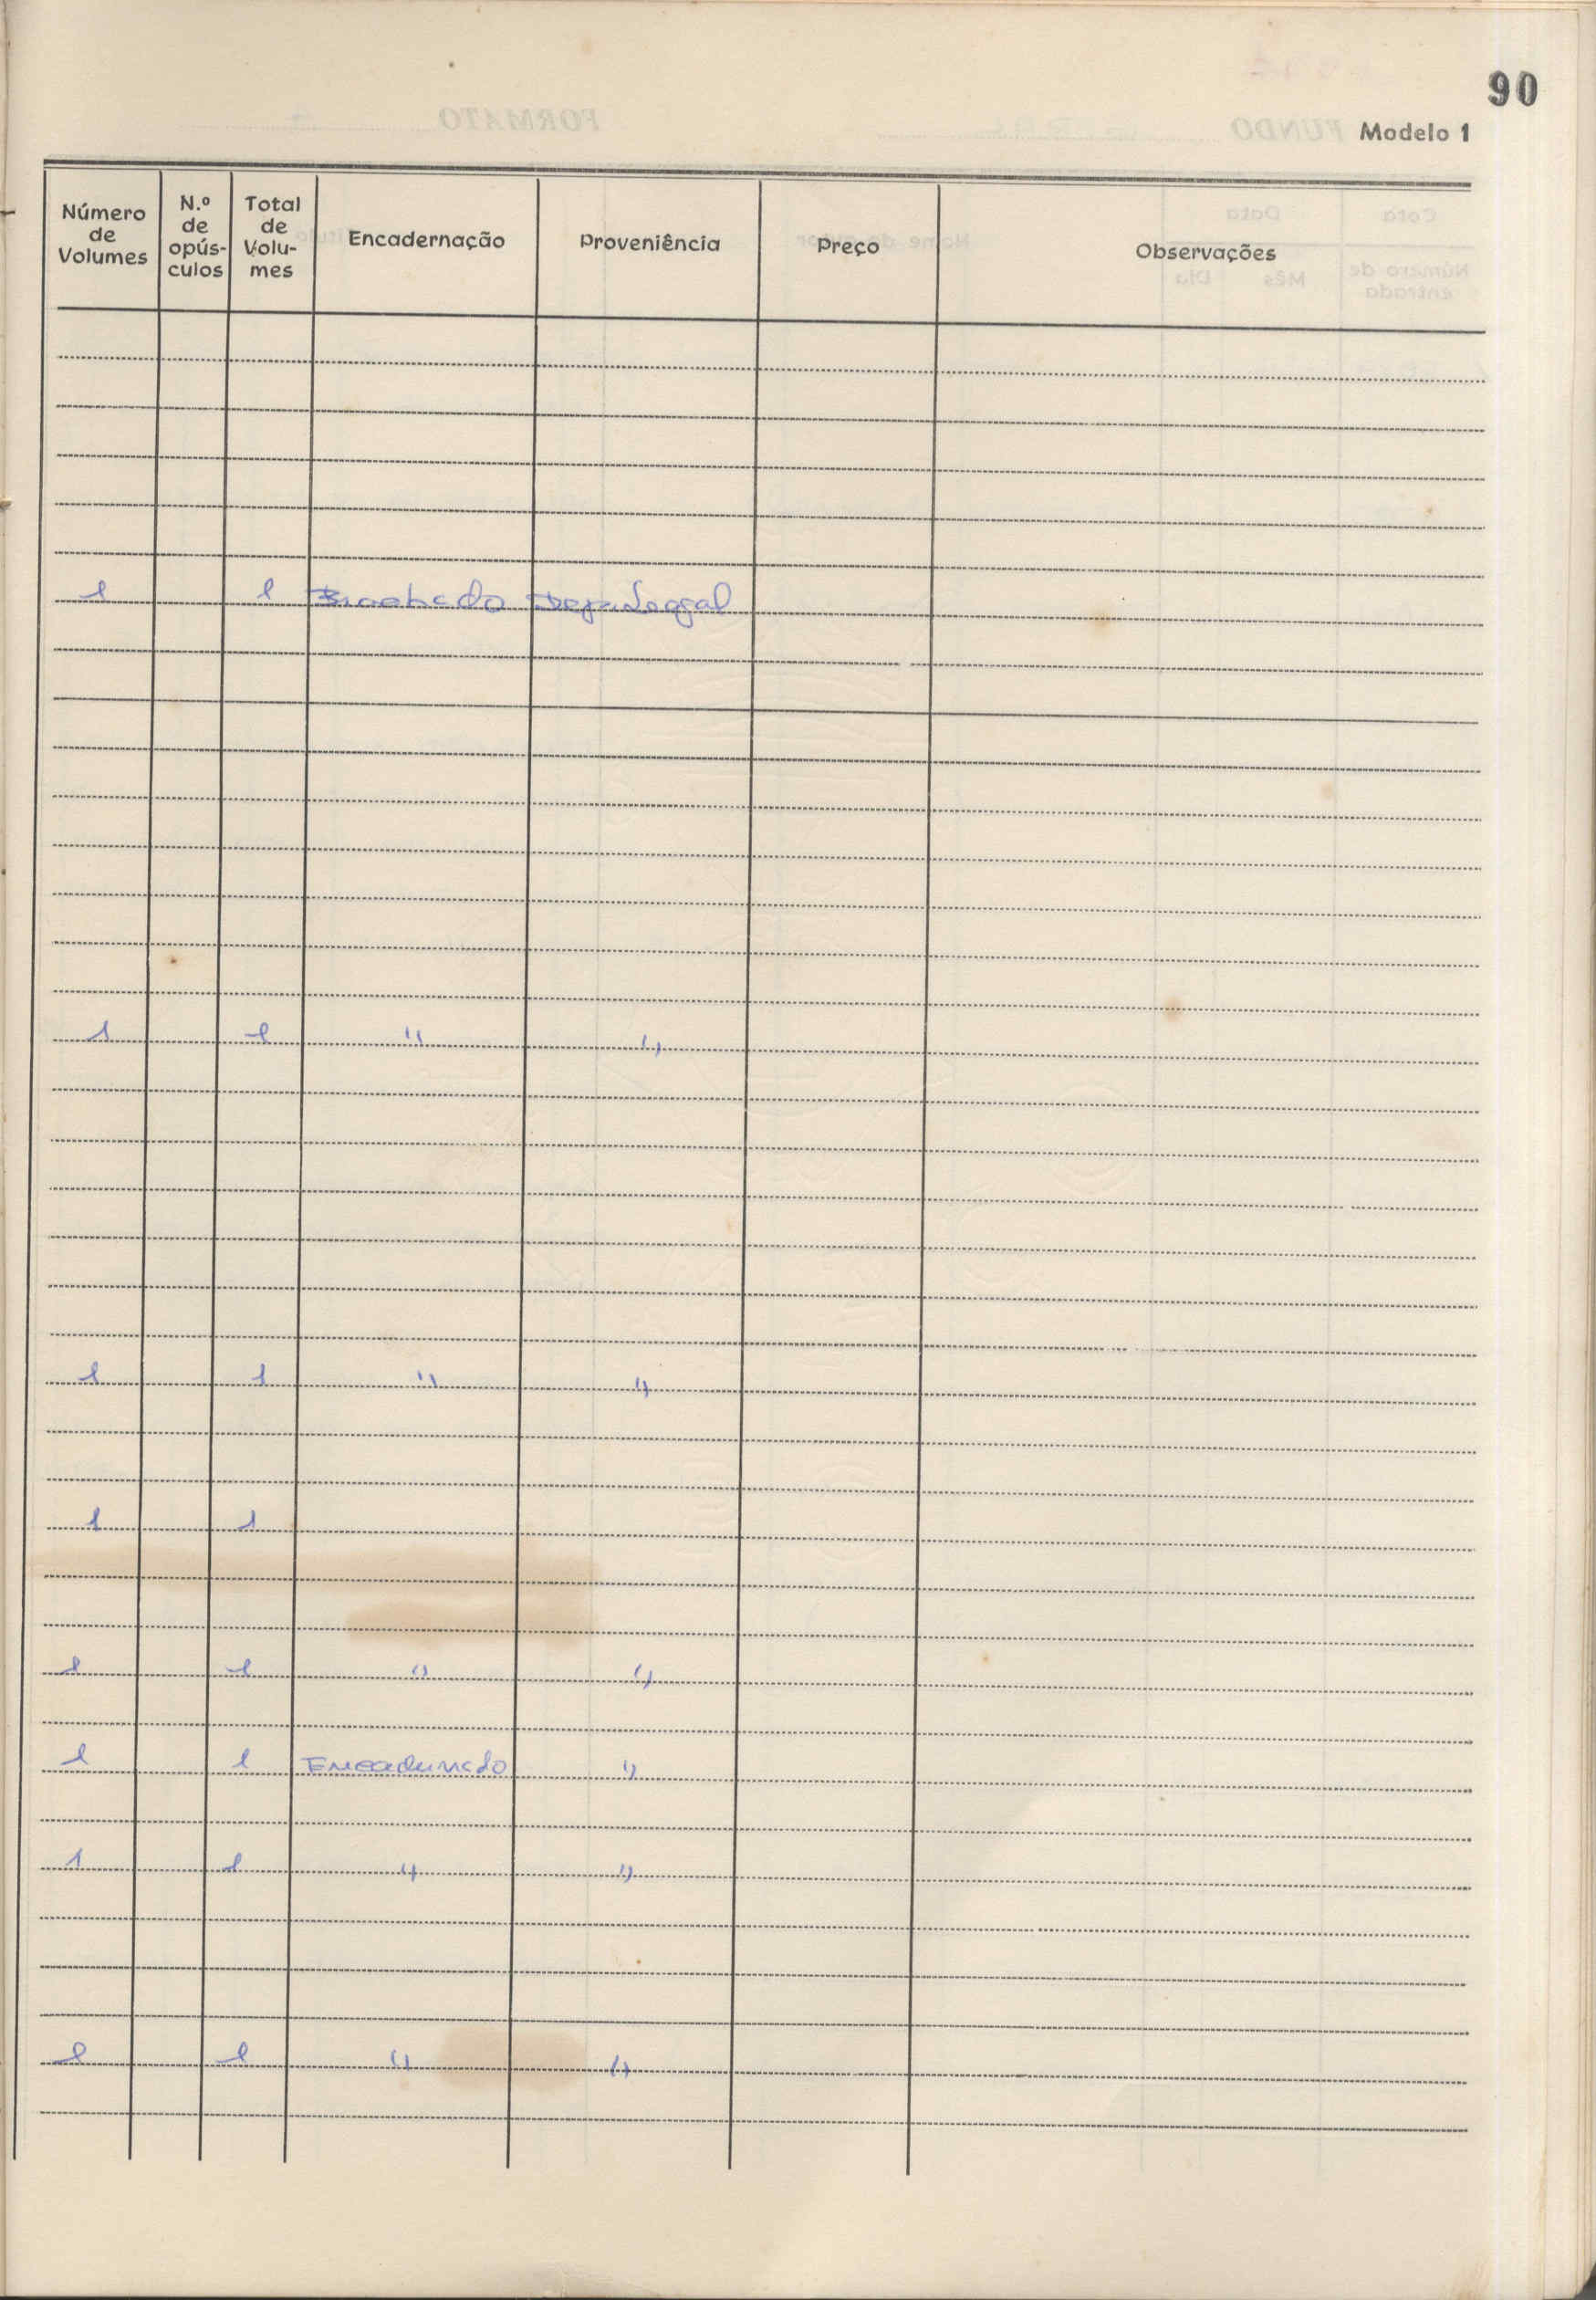 90
Modelo 1
Número de Volumes | N.º de opús-culos | Total de Volu-mes | Encadernação | Proveniência | Preço | Observações
1 1 Brochado Dep. Legal
1 1 " "
1 1 " "
1 1
1 1 " "
1 1 Encadernado "
1 1 " "
1 1 " "